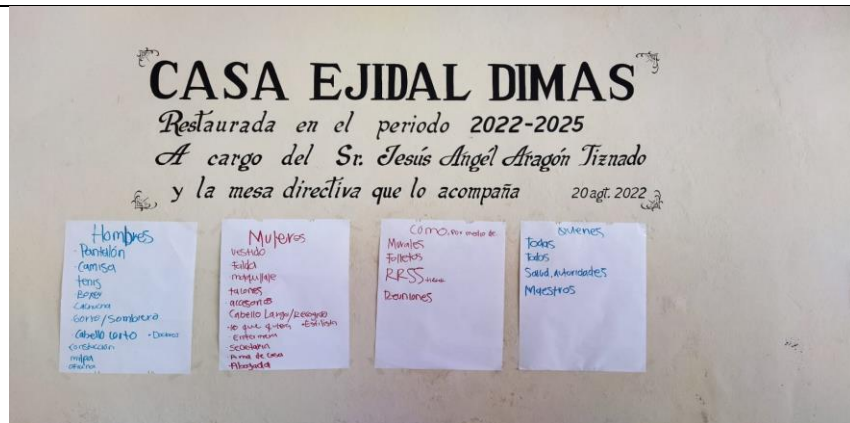 CASA EJIDAL DIMAS
Restaurada en el periodo 2022-2025
A cargo del Sr. Jesús Angél Aragón Tiznado
y la mesa directiva que lo acompaña
20 agt. 2022
Hombres
- Pantalón
- Camisa
tenis
- Boxer
- Cachucha
- Gorro/Sombrero
Cabello corto - Doctores
Construcción
milpa
Mujeres
vestido
falda
- maquillaje
tacones
- accesorios
Cabello Largo/Recogido
- lo que q-ten - Estilista
Enfermera
- Secretaria
- Ama de casa
- Abogada
Como. Por medio de
Murales
Folletos
RRSS
Reuniones
Quienes
Todas
Todos
Salud, Autoridades
Maestros